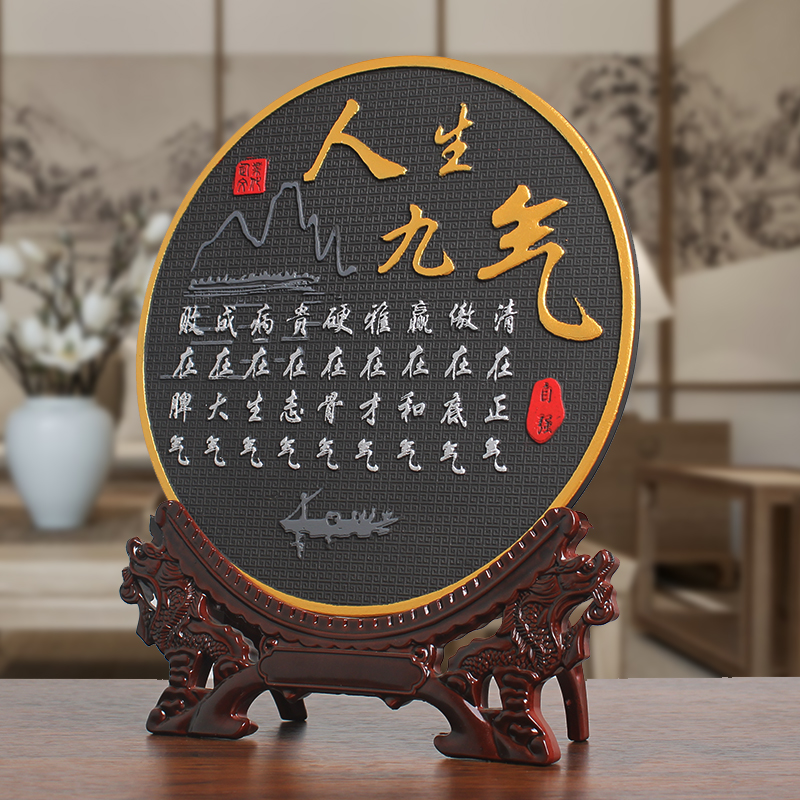 人生
九气
清在正气
傲在底气
赢在和气
雅在才气
硬在骨气
贵在志气
病在生气
成在大气
败在脾气
自强